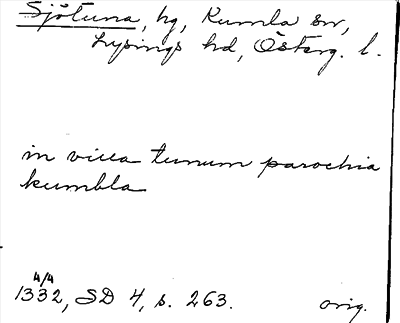 Sjötuna, hg, Kumla sn,
Lysings hd, Österg. l.
in villa tunum parochia
kumbla
4/4
1332, SD 4, s. 263.
orig.